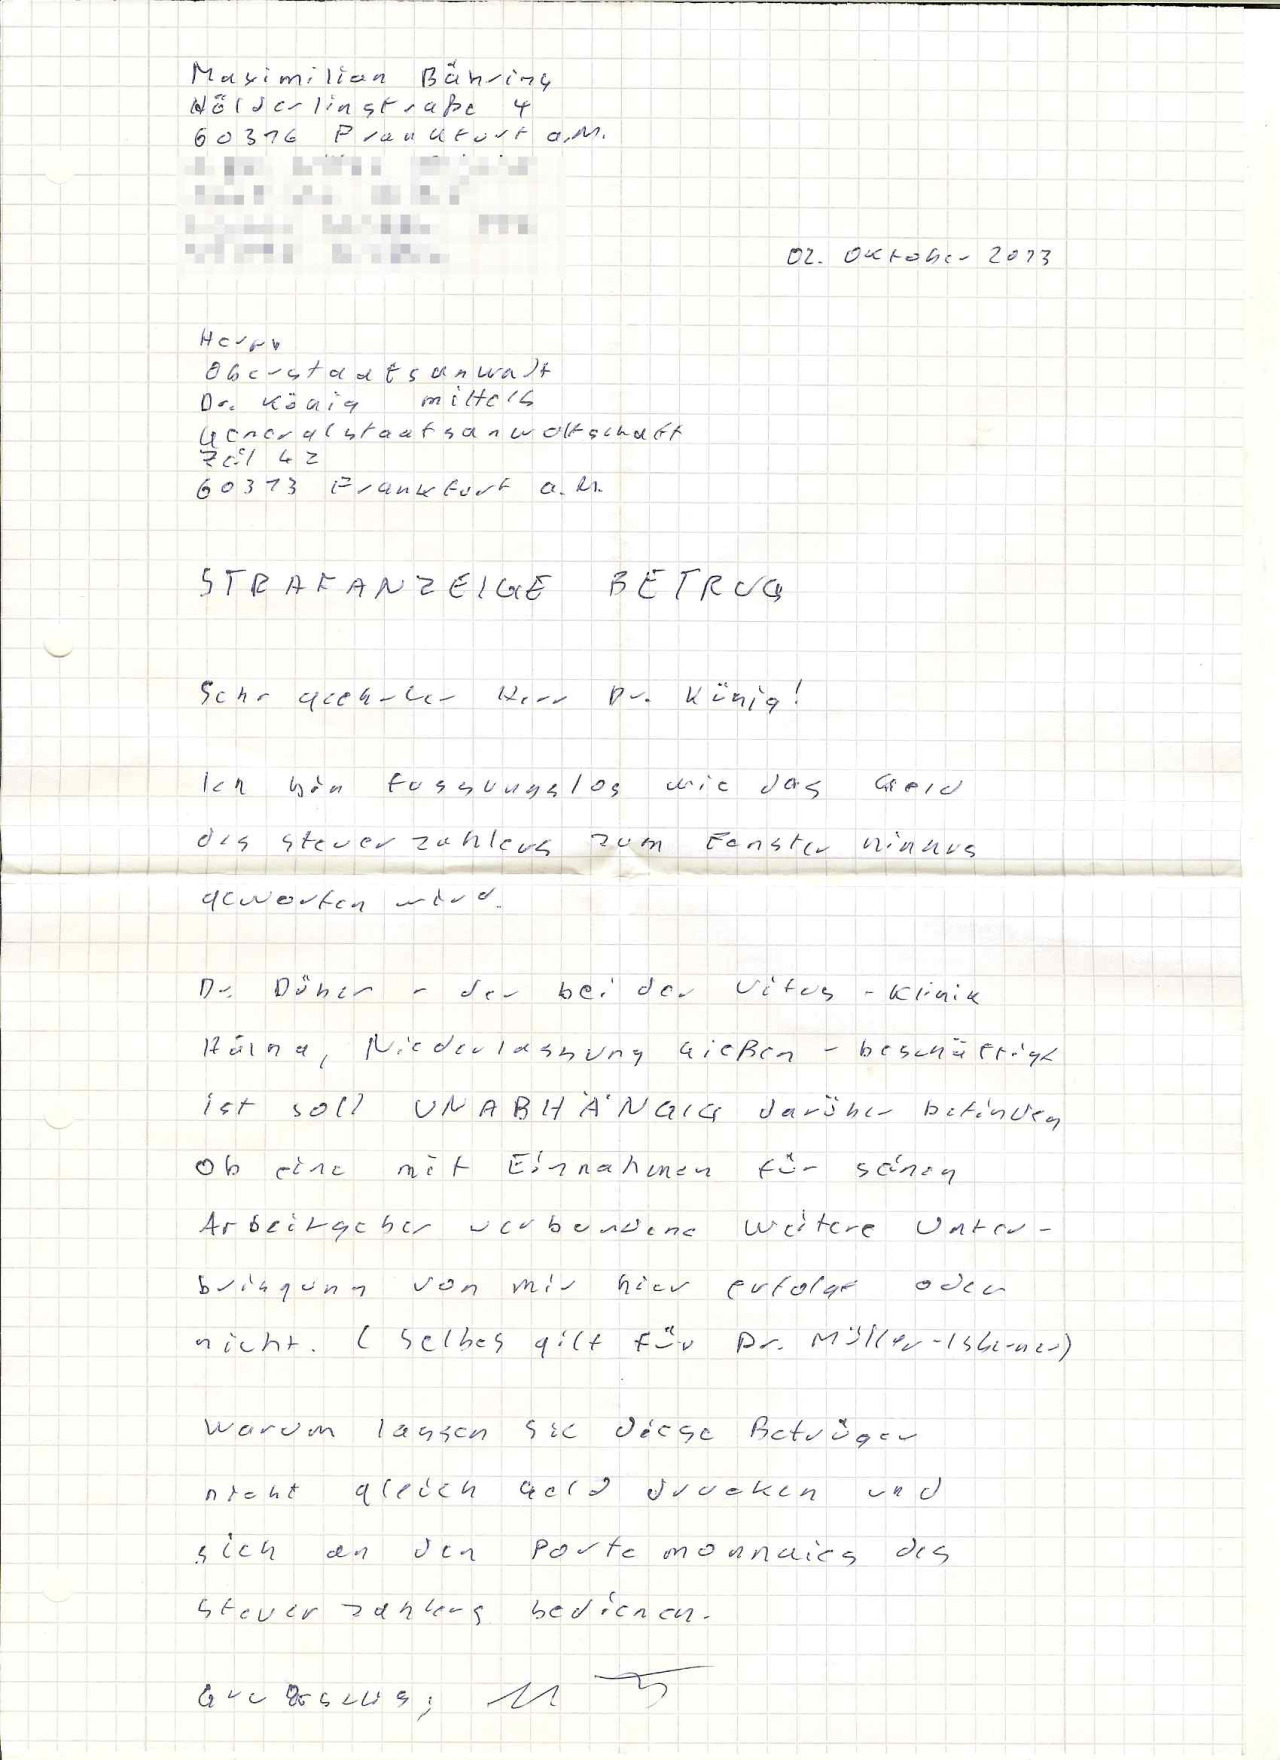 Maximilian Bähring
Hölderlinstraße 4
60316 Frankfurt a.M.
02. Oktober 2013
Herrn
Oberstaatsanwalt
Dr. König mittels
Generalstaatsanwaltschaft
Zeil 42
60313 Frankfurt a.M.
STRAFANZEIGE BETRUG
Sehr geehrter Herr Dr. König!
Ich bin fassungslos wie das Geld
des steuerzahlers zum Fenster hinaus
geworfen wird.
Dr. - der bei der Vitos - Klinik
Haina, Niederlassung Gießen - beschäftigt
ist soll UNABHÄNGIG darüber befinden
ob eine mit Einnahmen für seinen
Arbeitgeber verbundene weitere Unter-
bringung von mir hier erfolgt oder
nicht. (Selbes gilt für Dr. Müller-Isberner)
Warum lassen sie diese Betrüger
nicht gleich Geld drucken und
sich an den Portemonnaies des
steuerzahlers bedienen.